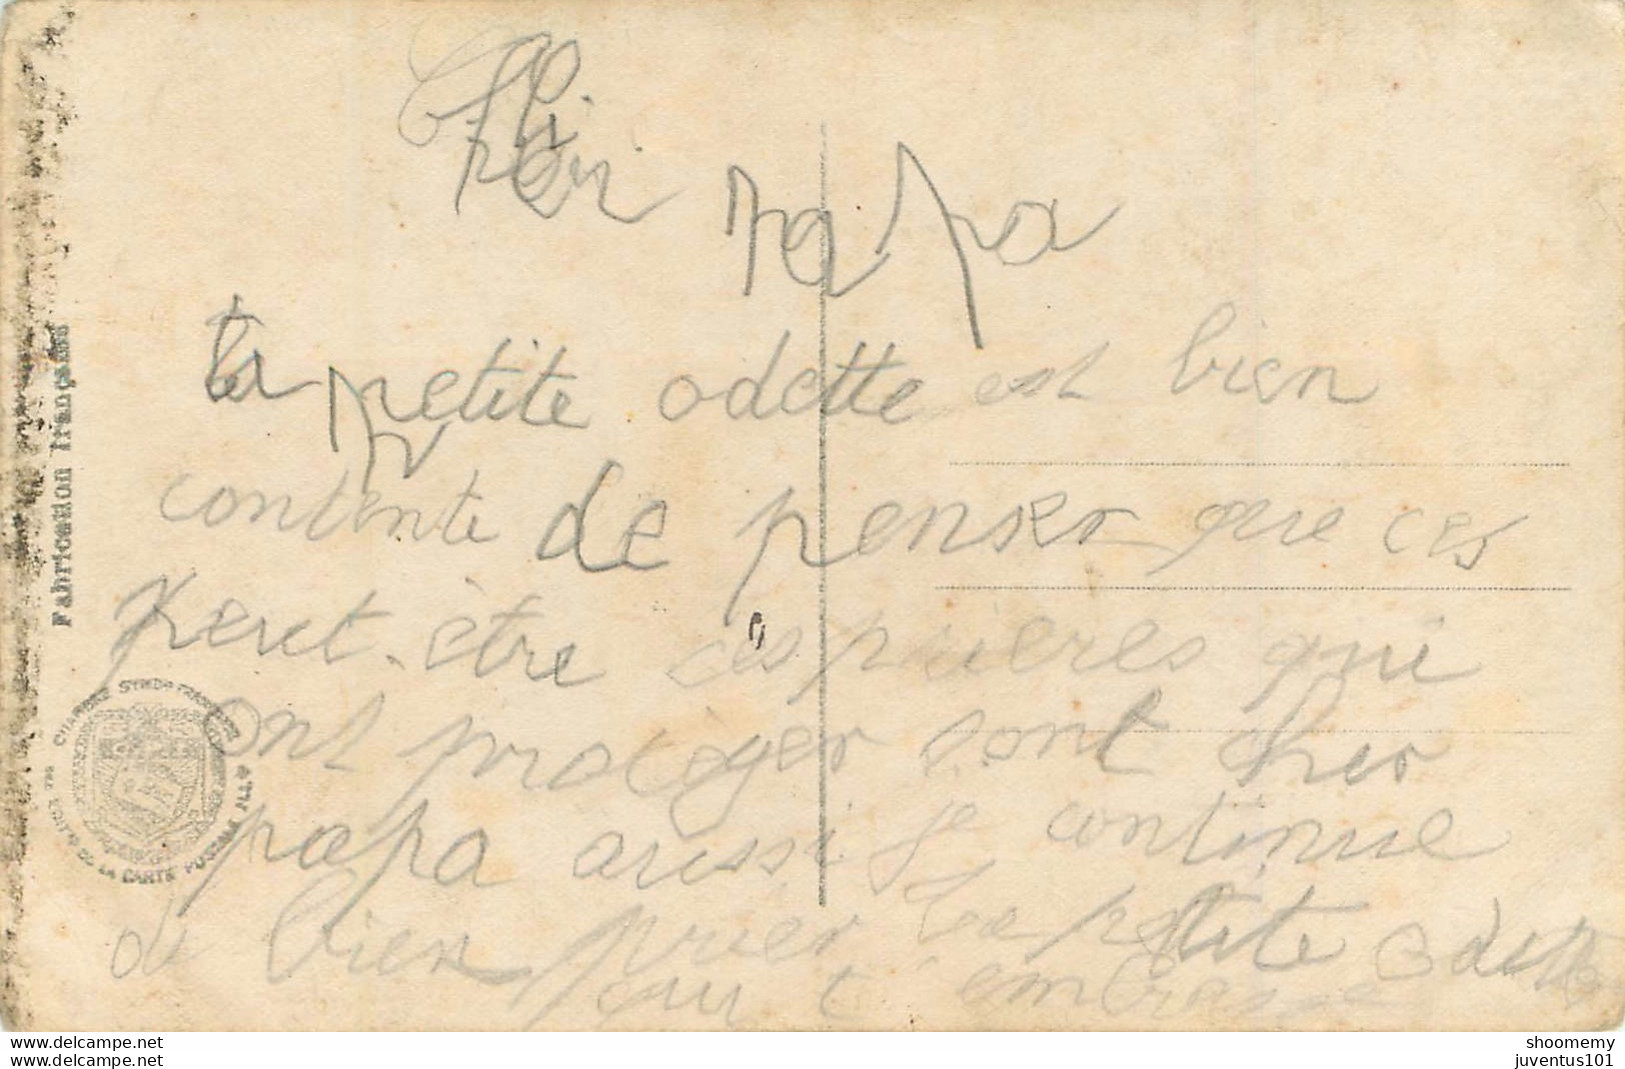 Cher papa
ta petite odette est bien
contente de penser que ces
peut-être ces prieres qui
ont protéger sont cher
papa aussi je continue
de bien prier ta petite Odette
qui t'embrasse
Fabrication française
CHAMBRE SYND. FRANÇAISE
DE LA CARTE POSTALE ILL.
www.delcampe.net
www.delcampe.net
shoomemy
juventus101